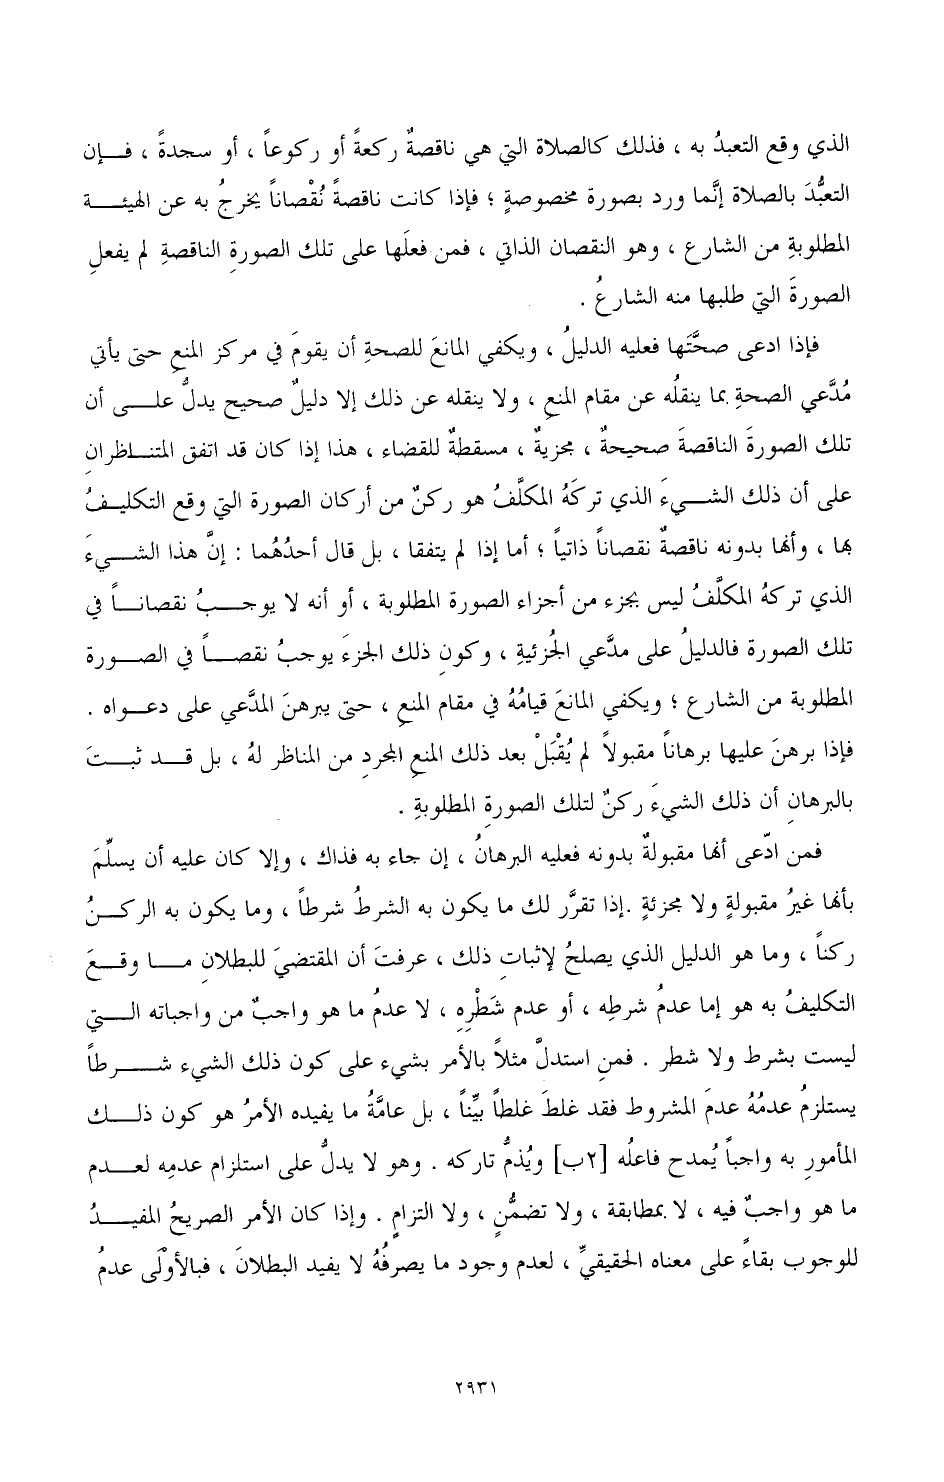 الذي وقع التعبدُ به ، فذلك كالصلاة التي هي ناقصةٌ ركعةً أو ركوعاً ، أو سجدةً ، فــإن
التعبُّدَ بالصلاة إنَّما ورد بصورة مخصوصةٍ ؛ فإذا كانت ناقصةً نُقْصاناً يخرجُ به عن الهيئـــة
المطلوبةِ من الشارع ، وهو النقصان الذاتي ، فمن فعلَها على تلك الصورةِ الناقصةِ لم يفعلِ
الصورةَ التي طلبها منه الشارعُ .
فإذا ادعى صحَّتَها فعليه الدليلُ ، ويكفي المانعَ للصحةِ أن يقومَ في مركز المنعِ حتى يأتي
مُدَّعي الصحةِ بما ينقلُه عن مقام المنعِ ، ولا ينقله عن ذلك إلا دليلٌ صحيح يدلُّ علــى أن
تلك الصورةَ الناقصةَ صحيحةٌ ، مجزيةٌ ، مسقطةٌ للقضاء ، هذا إذا كان قد اتفق المتنــاظران
على أن ذلك الشـــيءَ الذي تركَهُ المكلَّفُ هو ركنٌ من أركان الصورة التي وقع التكليــفُ
بها ، وأنها بدونه ناقصةٌ نقصاناً ذاتياً ؛ أما إذا لم يتفقا ، بل قال أحدُهُما : إنَّ هذا الشـــيءَ
الذي تركهُ المكلَّفُ ليس بجزء من أجزاء الصورة المطلوبة ، أو أنه لا يوجــبُ نقصانــاً في
تلك الصورة فالدليلُ على مدَّعي الجُزئيةِ ، وكونِ ذلك الجزءَ يوجبُ نقصــاً في الصــورة
المطلوبة من الشارع ؛ ويكفي المانعَ قيامُهُ في مقام المنعِ ، حتى يبرهنَ المدَّعي على دعــواه .
فإذا برهنَ عليها برهاناً مقبولاً لم يُقْبَلْ بعد ذلك المنعِ المجردِ من المناظر لهُ ، بل قــد ثبــتَ
بالبرهانِ أن ذلك الشيءَ ركنٌ لتلك الصورةِ المطلوبةِ .
فمن ادّعى أنها مقبولةٌ بدونه فعليه البرهانُ ، إن جاء به فذاك ، وإلا كان عليه أن يسلِّمَ
بأنها غيرُ مقبولةٍ ولا مجزئةٍ .إذا تقرَّر لك ما يكون به الشرطُ شرطاً ، وما يكون به الركــنُ
ركناً ، وما هو الدليل الذي يصلحُ لإثباتِ ذلك ، عرفتَ أن المقتضيَ للبطلانِ مـــا وقــعَ
التكليفُ به هو إما عدمُ شرطِه ، أو عدم شَطْرِهِ ، لا عدمُ ما هو واجبٌ من واجباته الــتي
ليست بشرط ولا شطر . فمنِ استدلَّ مثلاً بالأمر بشيء على كون ذلك الشيء شـــرطاً
يستلزمُ عدمُهُ عدمَ المشروط فقد غلطَ غلطاً بيِّناً ، بل عامَّةُ ما يفيده الأمرُ هو كون ذلــك
المأمورِ به واجباً يُمدح فاعلُه [٢ب] ويُذمُّ تاركه . وهو لا يدلُّ على استلزام عدمِه لعــدم
ما هو واجبٌ فيه ، لا بمطابقة ، ولا تضمُّنٍ ، ولا التزامٍ . وإذا كان الأمر الصريحُ المفيــدُ
للوجوب بقاءً على معناه الحقيقيِّ ، لعدم وجود ما يصرفُهُ لا يفيد البطلانَ ، فبالأوْلَى عدمُ
٢٩٣١